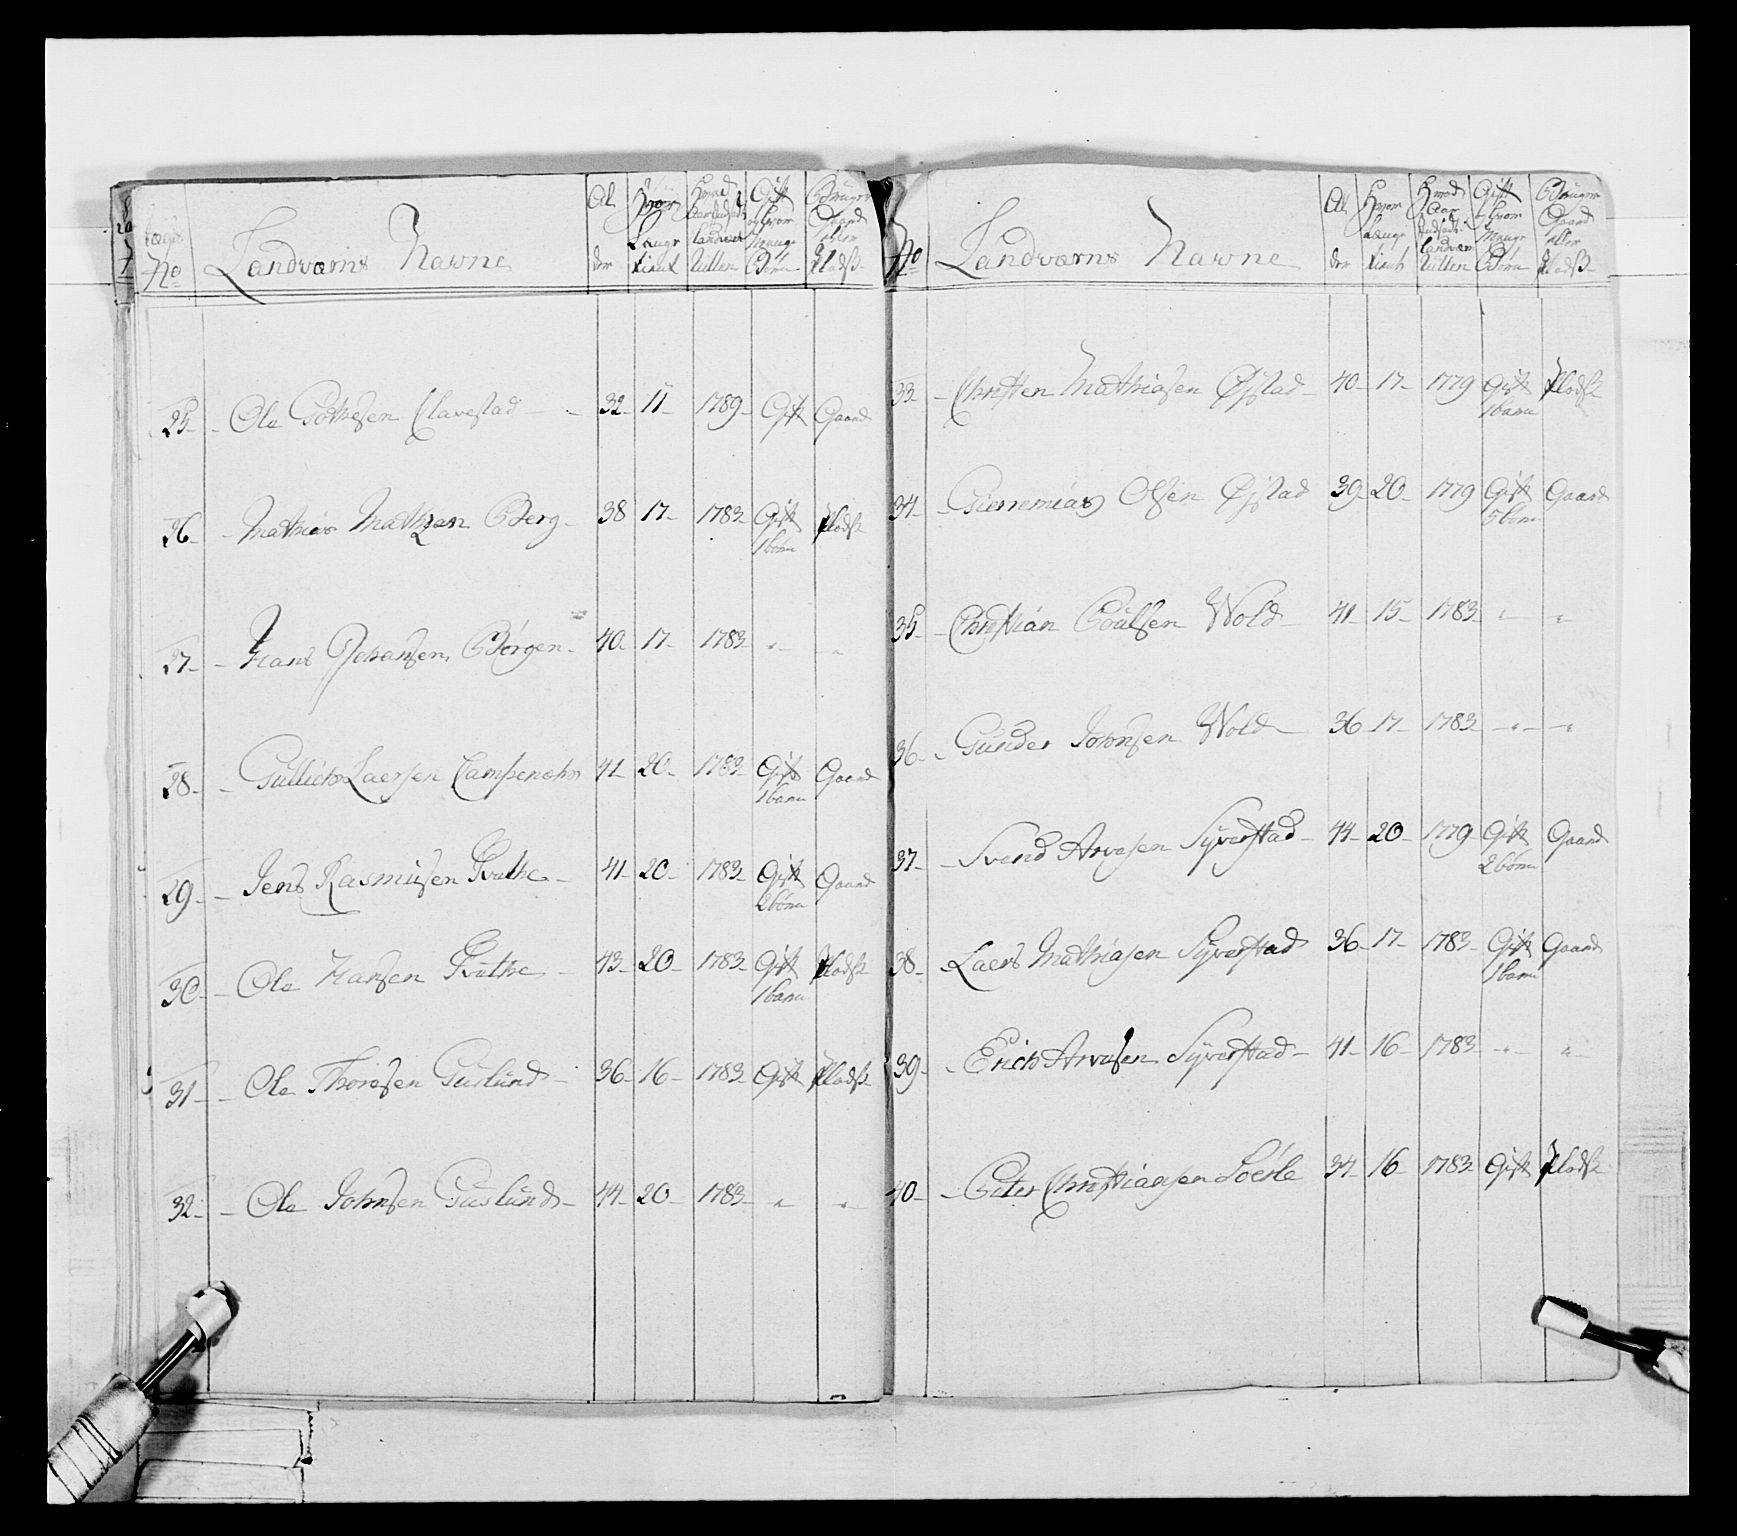 Lægs No Landværns Nawne Al der Hvor Længe tient Hvad Aar Indsadt i Landværn Rullen Gift Hvor Mange Børn Bruger Gaard eller Plads
25 - Ole Sothesen Clavestad - 32 - 11 - 1789 - Gift Gaard
26 - Mathias Mathesen Berg - 38 17 - 1783 Gift Plads
1 børn
27 - Hans Johansen Børgen - 40 - 17 - 1783 - " - "
28 - Gullich Laersen Campenæhs 41 - 20 - 1783 - Gift Gaard
1 barn
29 - Jens Rasmusen - 41 - 20 - 1783 - Gift Gaard
2 børn
30 - Ole Hansen - 43 - 20 - 1783 - Gift Plads
1 barn
31 - Ole Thoresen Guslund - 36 - 16 - 1783 - Gift Plads
32 - Ole Johnsen Guslund - 44 - 20 - 1783 - " "
No Landværns Nawne Al der Hvor Længe tient Hvad Aar Indsadt i Landværn Rullen Gift Hvor Mange Børn Bruger Gaard eller Plads
33 - Christen Mathiasen Øystad - 40 - 17 - 1779 Gift Plads
1 barn
34 - Gieremias Olsen Øystad 39 - 20 - 1779 Gift Gaard
5 børn
35 - Christian Poulsen Wold - 41 - 15 - 1783 - " "
36 - Gunder Johnsen Wold - 36 - 17 - 1783 - " - "
37 - Svend Arvesen Syverstad - 44 - 20 - 1779 Gift Gaard
2 børn
38 - Laers Mathiasen Syverstad 36 - 17 - 1783 - Gift Gaard
1 barn
39 - Erich Arvesen Syverstad - 41 - 16 - 1783 - " "
40 - Peter Christiansen Soelle 34 - 16 - 1783 - Gift Plads